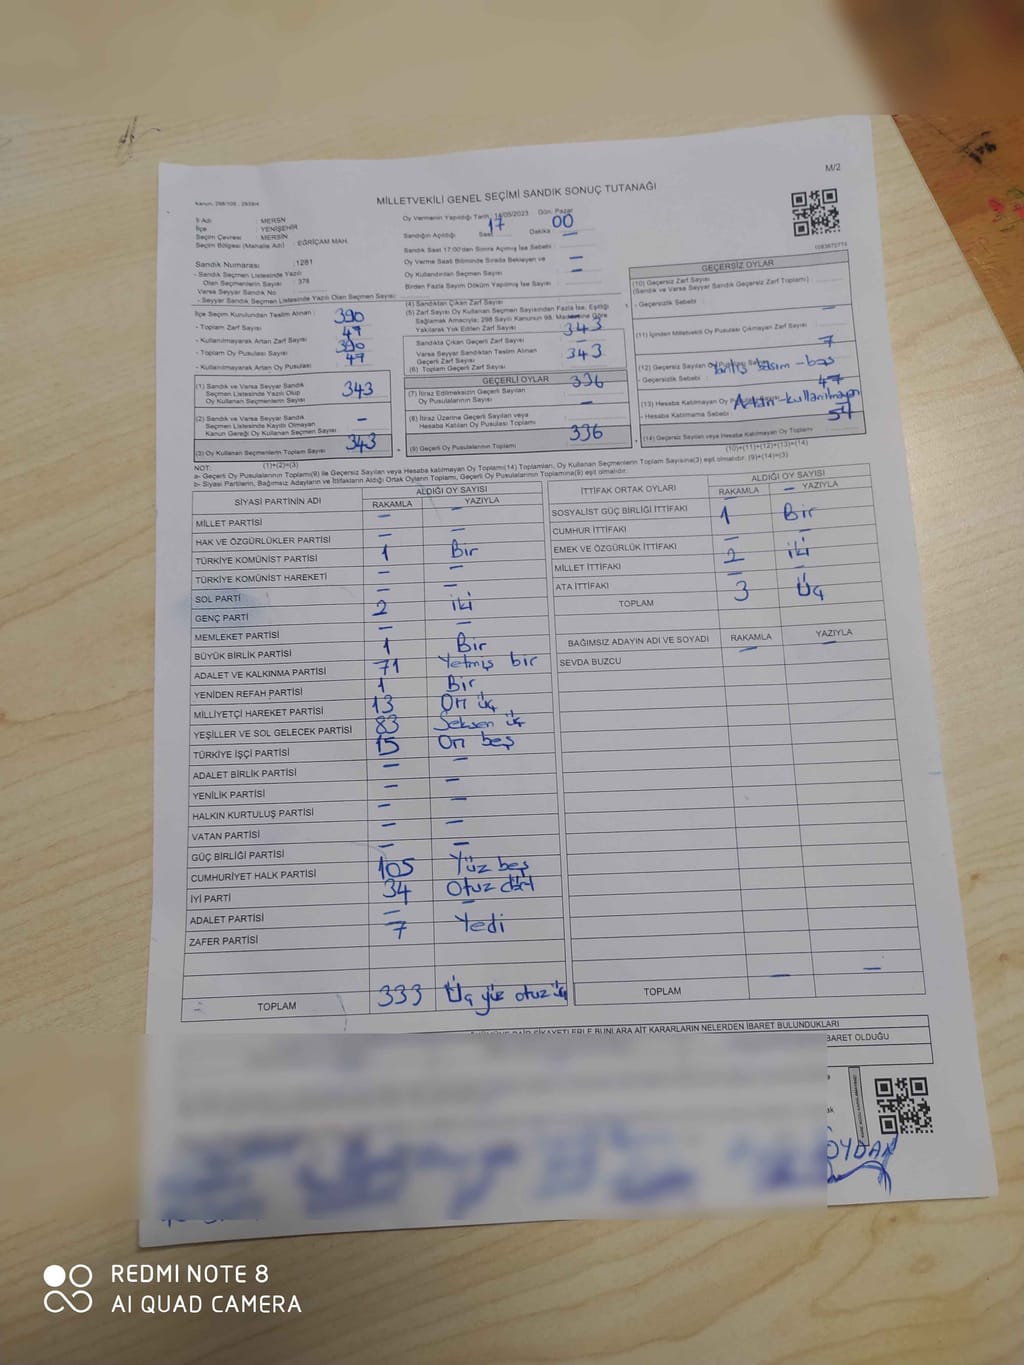 M/2
MİLLETVEKİLİ GENEL SEÇİMİ SANDIK SONUÇ TUTANAĞI
İl Adı : MERSİN
İlçe : YENİŞEHİR
Seçim Çevresi : MERSİN
Seçim Bölgesi (Mahalle Adı) : EĞRİÇAM MAH.
Sandık Numarası : 1281
- Sandık Seçmen Listesinde Yazılı
Olan Seçmenlerin Sayısı : 376
Varsa Seyyar Sandık No :
- Seyyar Sandık Seçmen Listesinde Yazılı Olan Seçmen Sayısı :
Oy Vermenin Yapıldığı Tarih : 14/05/2023 Gün: Pazar
Sandığın Açıldığı Saat 17 Dakika 00
Sandık Saat 17:00'den Sonra Açılmış İse Sebebi : —
Oy Verme Saati Bitiminde Sırada Bekleyen ve
Oy Kullandırılan Seçmen Sayısı —
Birden Fazla Sayım Döküm Yapılmış İse Sayısı —
İlçe Seçim Kurulundan Teslim Alınan :
- Toplam Zarf Sayısı 390
- Kullanılmayarak Artan Zarf Sayısı 47
- Toplam Oy Pusulası Sayısı 390
- Kullanılmayarak Artan Oy Pusulası 47
(1) Sandık ve Varsa Seyyar Sandık
Seçmen Listesinde Yazılı Olup
Oy Kullanan Seçmenlerin Sayısı 343
(2) Sandık ve Varsa Seyyar Sandık
Seçmen Listesinde Kayıtlı Olmayan
Kanun Gereği Oy Kullanan Seçmen Sayısı —
(3) Oy Kullanan Seçmenlerin Toplam Sayısı 343
(1)+(2)=(3)
(4) Sandıktan Çıkan Zarf Sayısı
(5) Zarf Sayısı Oy Kullanan Seçmen Sayısından Fazla İse, Eşitliği
Sağlamak Amacıyla; 298 Sayılı Kanunun 98. Maddesine Göre
Yakılarak Yok Edilen Zarf Sayısı
Sandıkta Çıkan Geçerli Zarf Sayısı 343
Varsa Seyyar Sandıktan Teslim Alınan
Geçerli Zarf Sayısı
(6) Toplam Geçerli Zarf Sayısı 343
GEÇERLİ OYLAR
(7) İtiraz Edilmeksizin Geçerli Sayılan
Oy Pusulalarının Sayısı 336
(8) İtiraz Üzerine Geçerli Sayılan veya
Hesaba Katılan Oy Pusulası Toplamı —
(9) Geçerli Oy Pusulalarının Toplamı 336
GEÇERSİZ OYLAR
(10) Geçersiz Zarf Sayısı
(Sandık ve Varsa Seyyar Sandık Geçersiz Zarf Toplamı) :
- Geçersizlik Sebebi : —
(11) İçinden Milletvekili Oy Pusulası Çıkmayan Zarf Sayısı
(12) Geçersiz Sayılan Oy 7
- Geçersizlik Sebebi :
(13) Hesaba Katılmayan Oy 47
- Hesaba Katılmama Sebebi : Artan-kullanılmayan
(14) Geçersiz Sayılan veya Hesaba Katılmayan Oy Toplamı 54
(10)+(11)+(12)+(13)=(14)
NOT:
a- Geçerli Oy Pusulaları(9) ile Geçersiz Sayılan veya Hesaba katılmayan Oy Toplamı(14) Toplamları, Oy Kullanan Seçmenlerin Toplam Sayısına(3) eşit olmalıdır. (9)+(14)=(3)
b- Siyasi Partilerin, Bağımsız Adayların ve İttifakların Aldığı Ortak Oyların Toplamı, Geçerli Oy Pusulalarının Toplamına(9) eşit olmalıdır.
SİYASİ PARTİNİN ADI ALDIĞI OY SAYISI
RAKAMLA YAZIYLA
MİLLET PARTİSİ — —
HAK VE ÖZGÜRLÜKLER PARTİSİ — —
TÜRKİYE KOMÜNİST PARTİSİ 1 Bir
TÜRKİYE KOMÜNİST HAREKETİ — —
SOL PARTİ — —
GENÇ PARTİ 2 iki
MEMLEKET PARTİSİ — —
BÜYÜK BİRLİK PARTİSİ 1 Bir
ADALET VE KALKINMA PARTİSİ 71 Yetmiş bir
YENİDEN REFAH PARTİSİ 1 Bir
MİLLİYETÇİ HAREKET PARTİSİ 13 On üç
YEŞİLLER VE SOL GELECEK PARTİSİ 83 Seksen üç
TÜRKİYE İŞÇİ PARTİSİ 15 On beş
ADALET BİRLİK PARTİSİ — —
YENİLİK PARTİSİ — —
HALKIN KURTULUŞ PARTİSİ — —
VATAN PARTİSİ — —
GÜÇ BİRLİĞİ PARTİSİ — —
CUMHURİYET HALK PARTİSİ 105 Yüz beş
İYİ PARTİ 34 Otuz dört
ADALET PARTİSİ — —
ZAFER PARTİSİ 7 Yedi
TOPLAM 333 Üç yüz otuz üç
İTTİFAK ORTAK OYLARI ALDIĞI OY SAYISI
RAKAMLA YAZIYLA
SOSYALİST GÜÇ BİRLİĞİ İTTİFAKI — —
CUMHUR İTTİFAKI 1 Bir
EMEK VE ÖZGÜRLÜK İTTİFAKI — —
MİLLET İTTİFAKI 2 iki
ATA İTTİFAKI — —
TOPLAM 3 Üç
BAĞIMSIZ ADAYIN ADI VE SOYADI RAKAMLA YAZIYLA
SEVDA BUZCU — —
TOPLAM — —
BARET OLDUĞU
REDMI NOTE 8
AI QUAD CAMERA